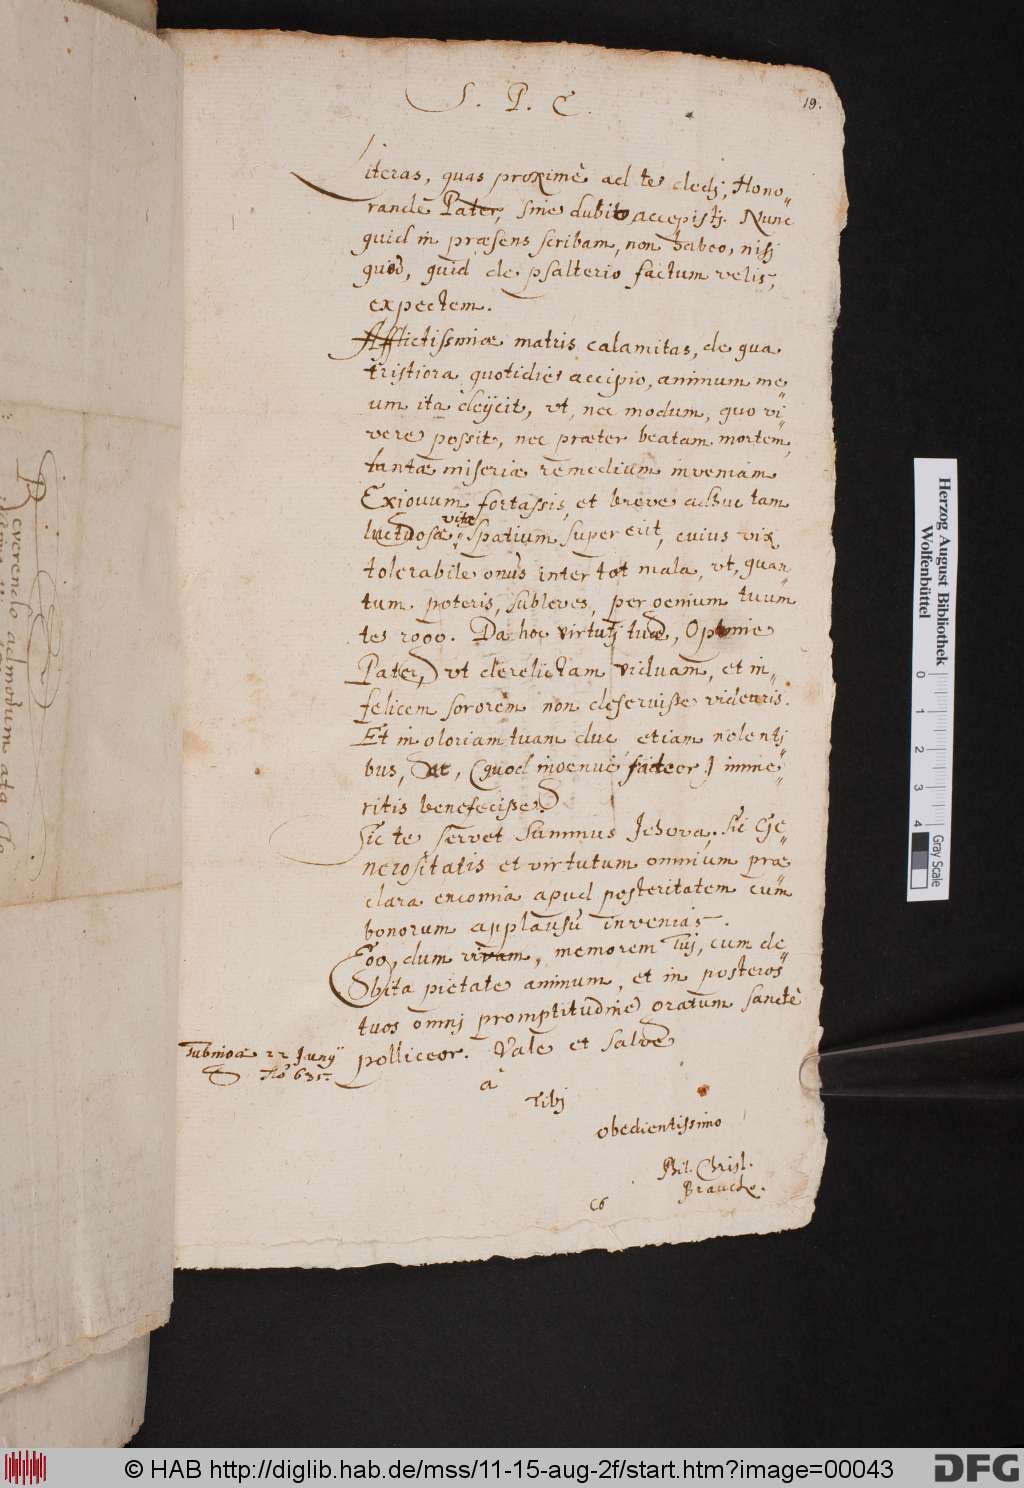 S. P. C.
19.
Literas, quas proximè ad te dedj, Hono„
rande Pater, sine dubio accepistj. Nunc
quid in præsens scribam, non habeo, nisj
quod, quid de psalterio factum velis,
expectem.
Afflictissimæ matris calamitas, de qua
tristiora quotidie accipio, animum me„
um ita dejicit, vt, nec modum, quo vi„
vere possit, nec præter beatam mortem,
tantæ miseriæ remedium inveniam
Exiguum fortassis, et breve adhuc tam
luctuosæ vitæ spatium supererit, cuius vix
tolerabile onus inter tot mala, vt, quan„
tum poteris, subleves, per genium tuum
te rogo. Da hoc virtutj tuæ, Optime
Pater, vt derelictam viduam, et in„
felicem sororem non deservisse videaris.
Et in gloriam tuam duc etiam nolentj„
bus, at, (quod ingenuè fateor) imme„
ritis benefecisse.
Sic te servet summus Jehova, sic Ge„
nerositatis et virtutum omnium præ
clara encomia apud posteritatem cum
bonorum applausu invenias.
Ego, dum vivam, memorem Tuj, cum de„
bita pietate animum, et in posteros
tuos omnj promptitudine gratum sanctè
polliceor. Vale et salve
Tubingæ 22 Junij
Ao 635.
à
Tibj
obedientissimo
Phil. Christ.
Brauch.
C6
Reverendo admodum atq
Herzog August Bibliothek
Wolfenbüttel
0 1 2 3 4
Gray Scale
© HAB http://diglib.hab.de/mss/11-15-aug-2f/start.htm?image=00043
DFG